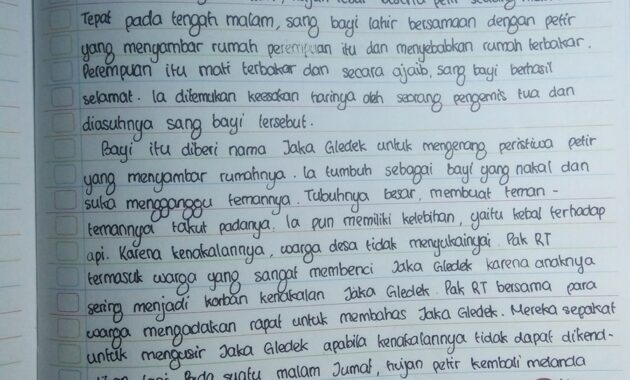 Tepat pada tengah malam, sang bayi lahir bersamaan dengan petir
yang mengambar rumah perempuan itu dan menyebabkan rumah terbakar.
Perempuan itu mati terbakar dan secara ajaib, sang bayi berhasil
selamat. Ia ditemukan keesokan harinya oleh seorang pengemis tua dan
diasuhnya sang bayi tersebut.
Bayi itu diberi nama Jaka Gledek untuk mengenang peristiwa petir
yang menyambar rumahnya. Ia tumbuh sebagai bayi yang nakal dan
suka mengganggu temannya. Tubuhnya besar, membuat teman-
temannya takut padanya. Ia pun memiliki kelebihan, yaitu kebal terhadap
api. Karena kenakalannya, warga desa tidak menyukainya. Pak RT
termasuk warga yang sangat membenci Jaka Gledek karena anaknya
sering menjadi korban kenakalan Jaka Gledek. Pak RT bersama para
warga mengadakan rapat untuk membahas Jaka Gledek. Mereka sepakat
untuk mengusir Jaka Gledek apabila kenakalannya tidak dapat dikend-
lagi. Pada suatu malam Jumat, hujan petir kembali melanda